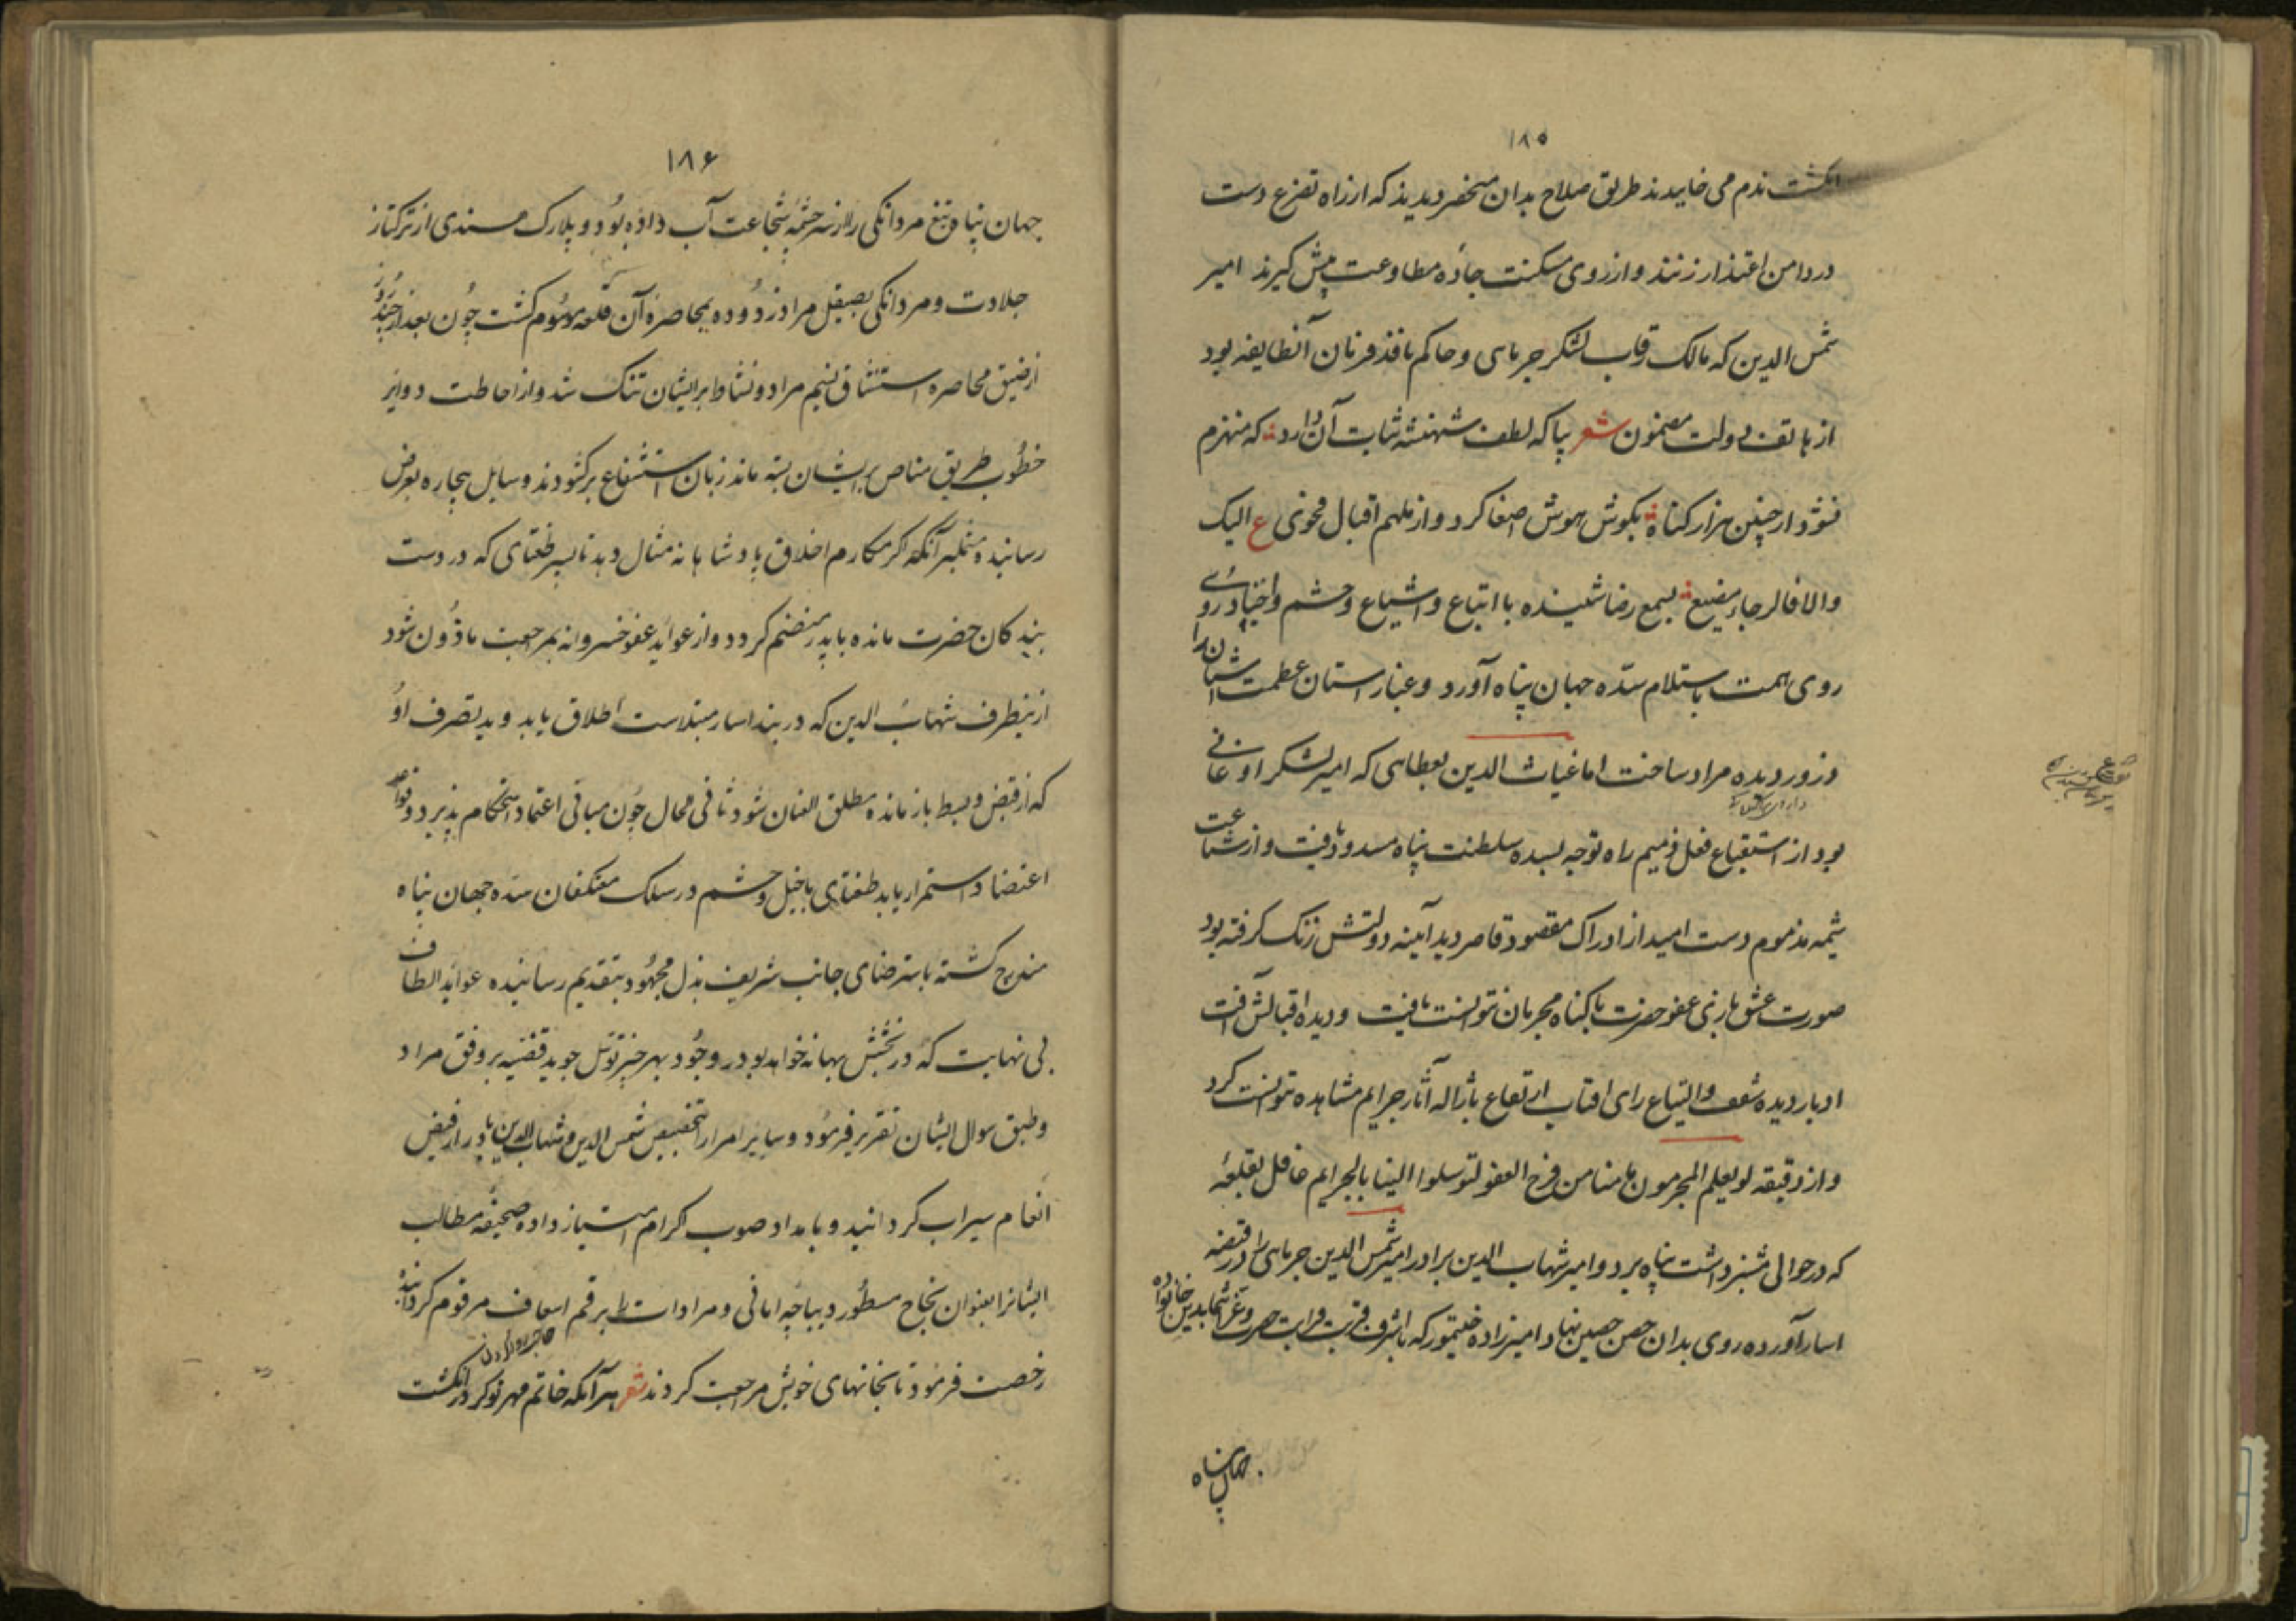 ۱۸۵
انکشت ندم می خاییدند طریق صلاح بدان منحصر دیدند که از راه تضرع دست
در دامن اعتذار زنند و از روی مسکنت جاده مطاوعت پیش کیرند امیر
شمس الدین که مالک رقاب لشکر جرمایی و حاکم نافذ فرمان آنطایفه بود
از هاتف دولت مضمون شعر بیا که لطف شهنشه ثبات آن دارد که منهزم
نشود از چنین هزار کناه بکوش هوش اصغا کرد و از ملهم اقبال فحوی ع الیک
والا فالرجاء مضیع بسمع رضا شنیده با اتباع و اشیاع و حشم و اجناد روی
روی همت باستلام سده جهان پناه آورد و غبار استان عظمت اشیان را
ذرور دیده مراد ساخت اما غیاث الدین بعطایی که امیر لشکر اوغانی
بود از استقباع فعل ذمیم راه توجه بسده سلطنت پناه مسدود یافت و از شناعت
شیمه مذموم دست امید از ادراک مقصود قاصر دید آیینه دولتش زنک کرفته بود
صورت عشق بازی عفو حضرت با کناه مجرمان نتوانست یافت و دیده اقبالش افت
ادبار دیده شعف والتیاع رای افتاب ارتفاع بازاله آثار جرایم مشاهده نتوانست کرد
و از دقیقه لو یعلم المجرمون ما منا من فرح العفو لتوسلوا الینا بالجرایم غافل بقلعه
که در حوالی مشیز داشت پناه برد و امیر شهاب الدین برادر امیر شمس الدین جرمایی را در قبضه
اسار آورده روی بدان حصن حصین نهاد امیرزاده خنیتمور که باشرف قربت و قرابت حضرت و غزا شجاع بدین خانواده
جهان پناه
۱۸۶
جهان پناه و تیغ مردانکی را از سرچشمه شجاعت آب داده بود و پلارک مسندی از ترکتاز
جلادت و مردانکی بصیقل مراد زدوده بمحاصره آن قلعه موسوم کشت چون بعد از چند روز
از ضیق محاصره استنشاق نسیم مراد و نشاط بر ایشان تنک شد و از احاطت دوایر
خطوب طریق مناص بر ایشان بسته ماند زبان استشفاع برکشودند و سایل بیچاره بعرض
رسانیده متکلبر آنکه اکر مکارم اخلاق پادشاهانه مثال دهد تا پسر طغتای که در دست
بندکان حضرت مانده با پدر منضم کردد و از عواید عفو خسروانه بمراجعت ماذون شود
ازینطرف شهاب الدین که در بند اسار مبتلاست اطلاق یابد و ید تصرف او
که از قبض و بسط باز مانده مطلق العنان شود ثانی الحال چون مبانی اعتماد استحکام پذیرد و قواعد
اعتضاد استمرار یابد طغتای با خیل و حشم در سلک معتکفان سده جهان پناه
مندرج کشته باسترضای جانب شریف بذل مجهود بتقدیم رسانیده عواید الطاف
بی نهایت که در بخشش بهانه خواهد بود در وجود بهر چیز توسل جوید قضیه بر وفق مراد
و طبق سوال ایشان تقریر فرمود و سایر امرا را بتخصیص شمس الدین و شهاب الدین را از فیض
انعام سیراب کردانید و بامداد صوب اکرام امتیاز داده صحیفه مطالب
ایشانرا بعنوان نجاح مسطور و دیباچه امانی و مرادات را برقم اسعاف مرقوم کردانیده
رخصت فرمود تا بخانهای خویش مراجعت کردند شعر هر آنکه خاتم مهر تو کرد در انکشت